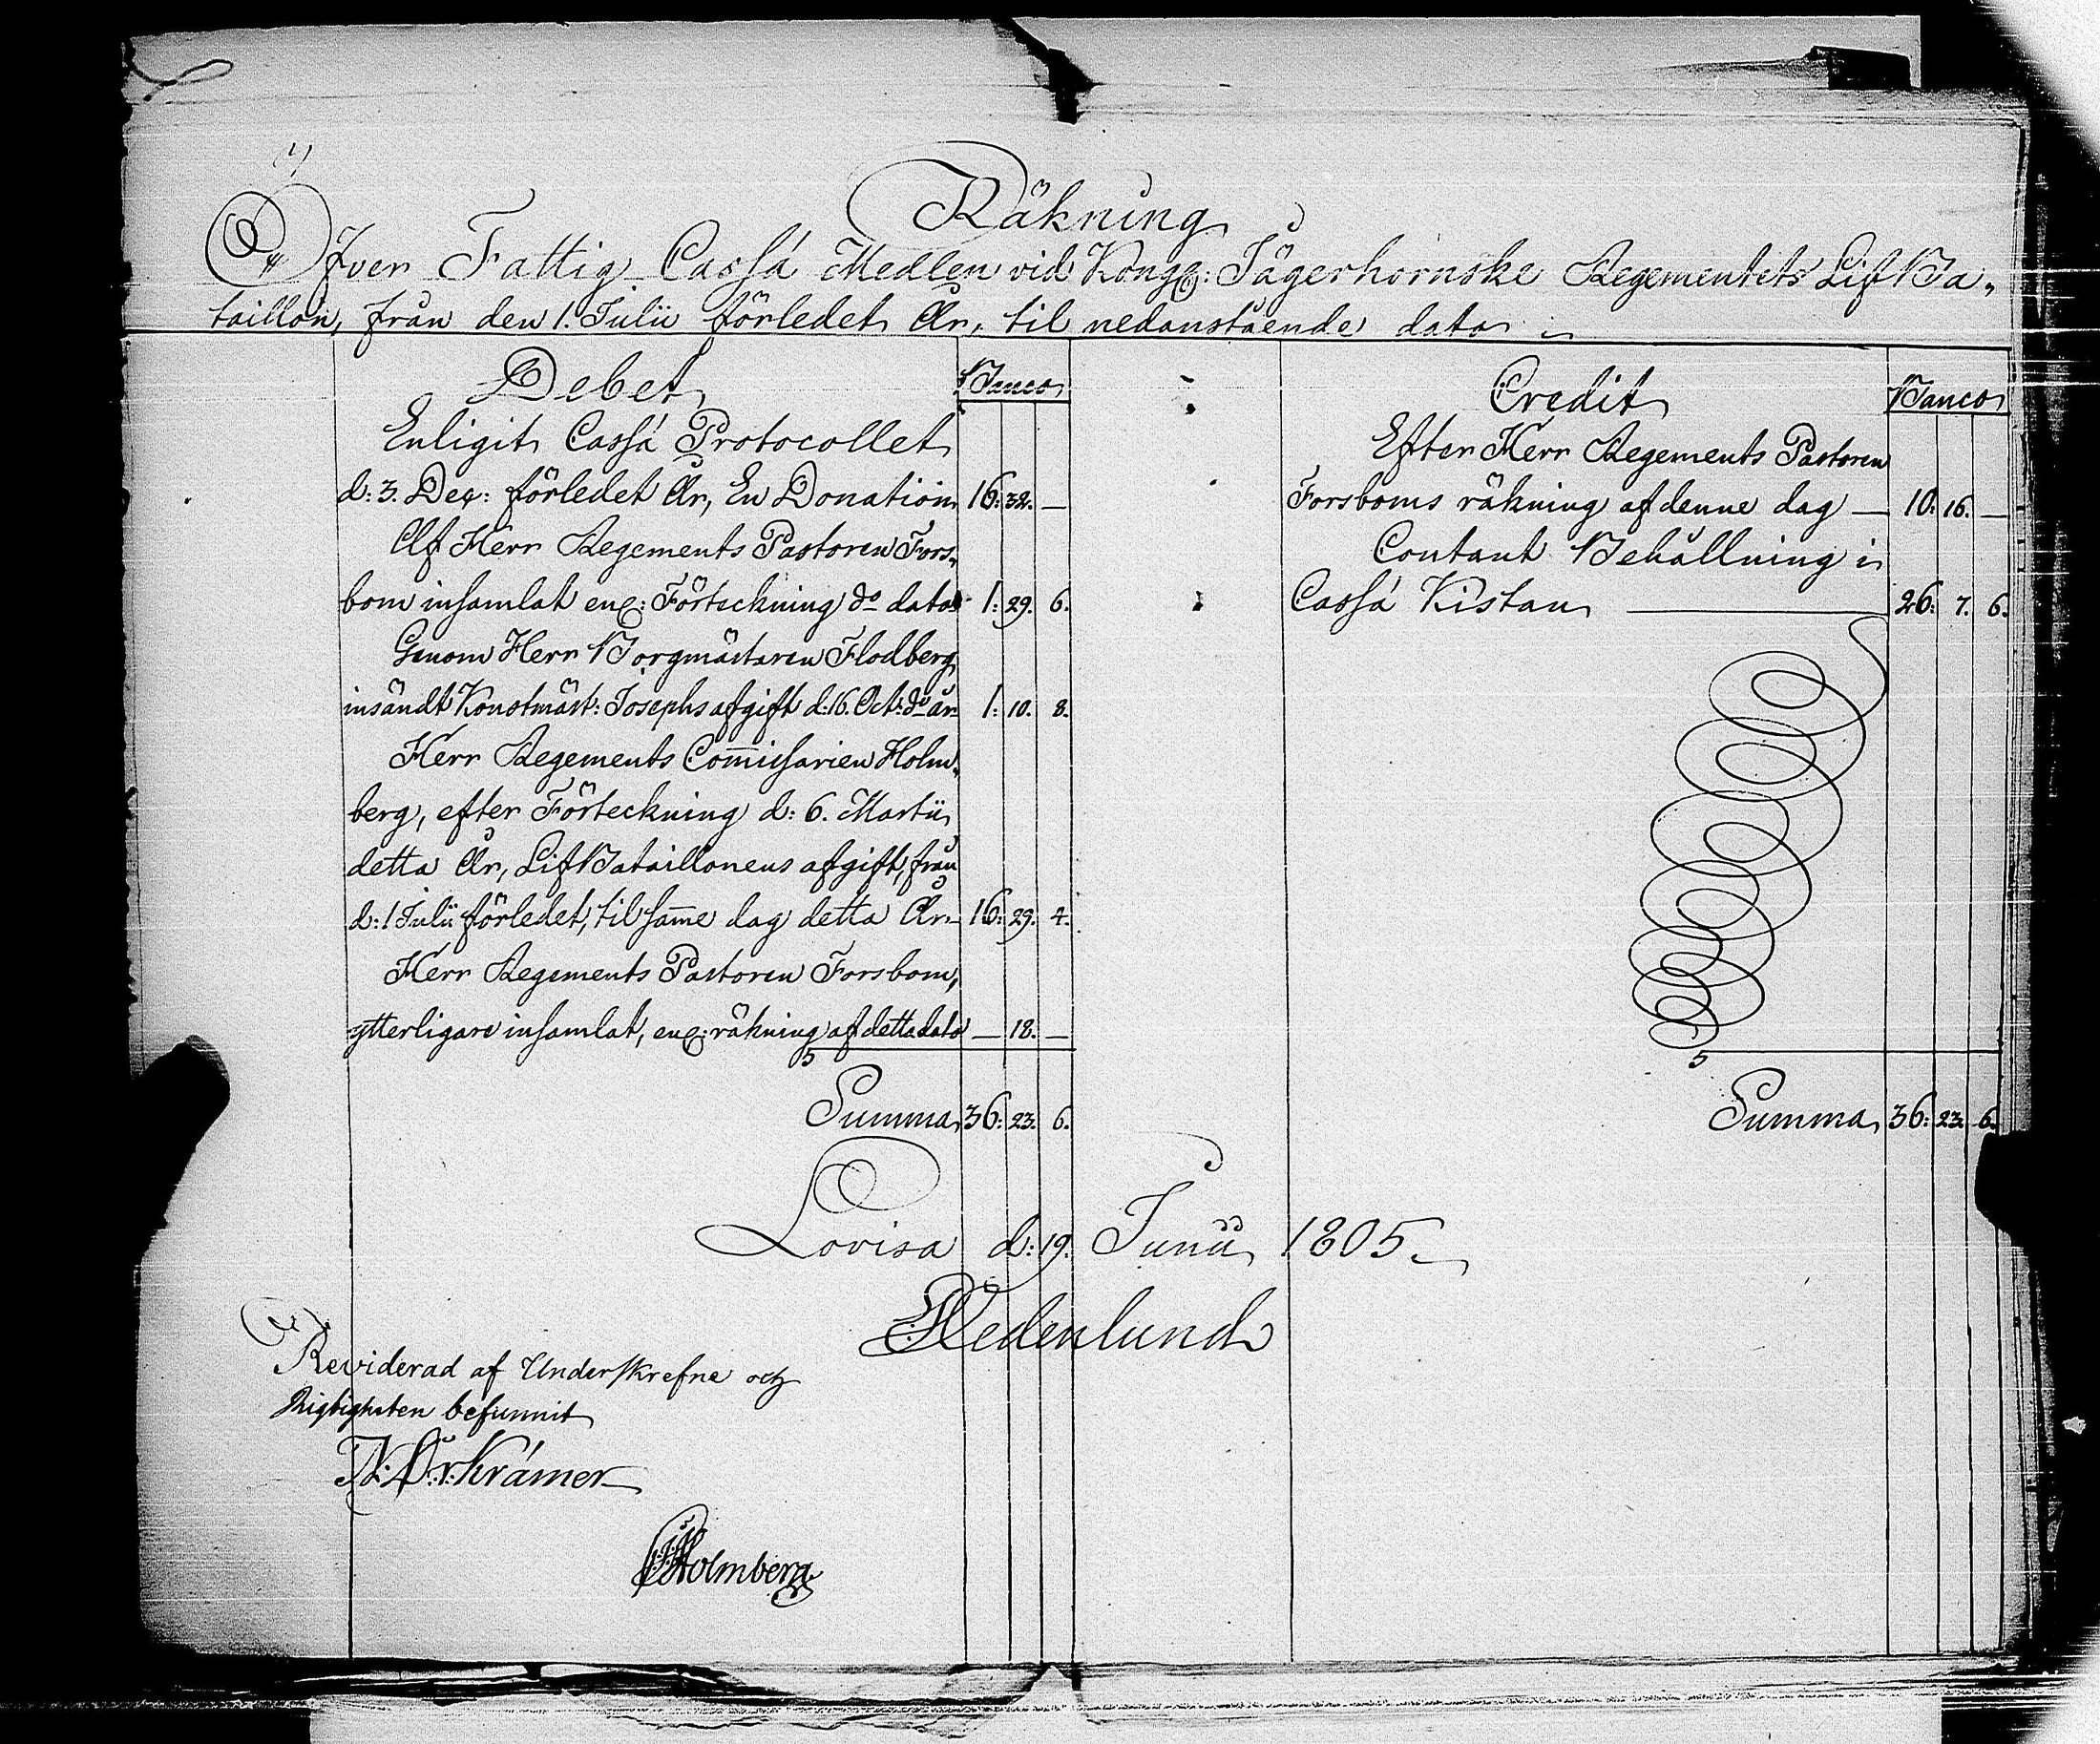 Räkning
Öfver Fattig Cassá Medlen vid Kongl: Jägerhornske Regementets Lif Ba,
taillon, från den 1. Julii förledet År, til nedanstående dato
Debet
Banco
Enligit Cassá Protocollet
d: 3. Dec: förledet År, En Donation 16: 32. —
Af Herr Regements Pastoren Fors,
bom insamlat enl: Förteckning do dato 1: 29. 6.
Genom Herr Borgmästaren Flodberg
insändt Konstmäst: Josephs afgift d: 16. Oct: do år 1: 10. 8.
Herr Regements Com̄issarien Holm,
berg, efter Förteckning d: 6. Martii
detta År, Lif Bataillonens afgift, från
d: 1 Julii förledet, til sam̄e dag detta År 16: 29. 4.
Herr Regements Pastoren Forsbom,
ytterligare insamlat, enl: räkning af detta dato — 18. —
Summa 36: 23. 6.
Credit
Banco
Efter Herr Regements Pastoren
Forsboms räkning af denne dag — 10. 16. —
Contant Behållning i
Cassá Kistan — 26: 7. 6.
Summa 36: 23. 6.
Lovisa d: 19. Junii 1805.
Hedenlund
Reviderad af Underskrefne och
Rigtigheten befunnit
Krämer
Holmberg